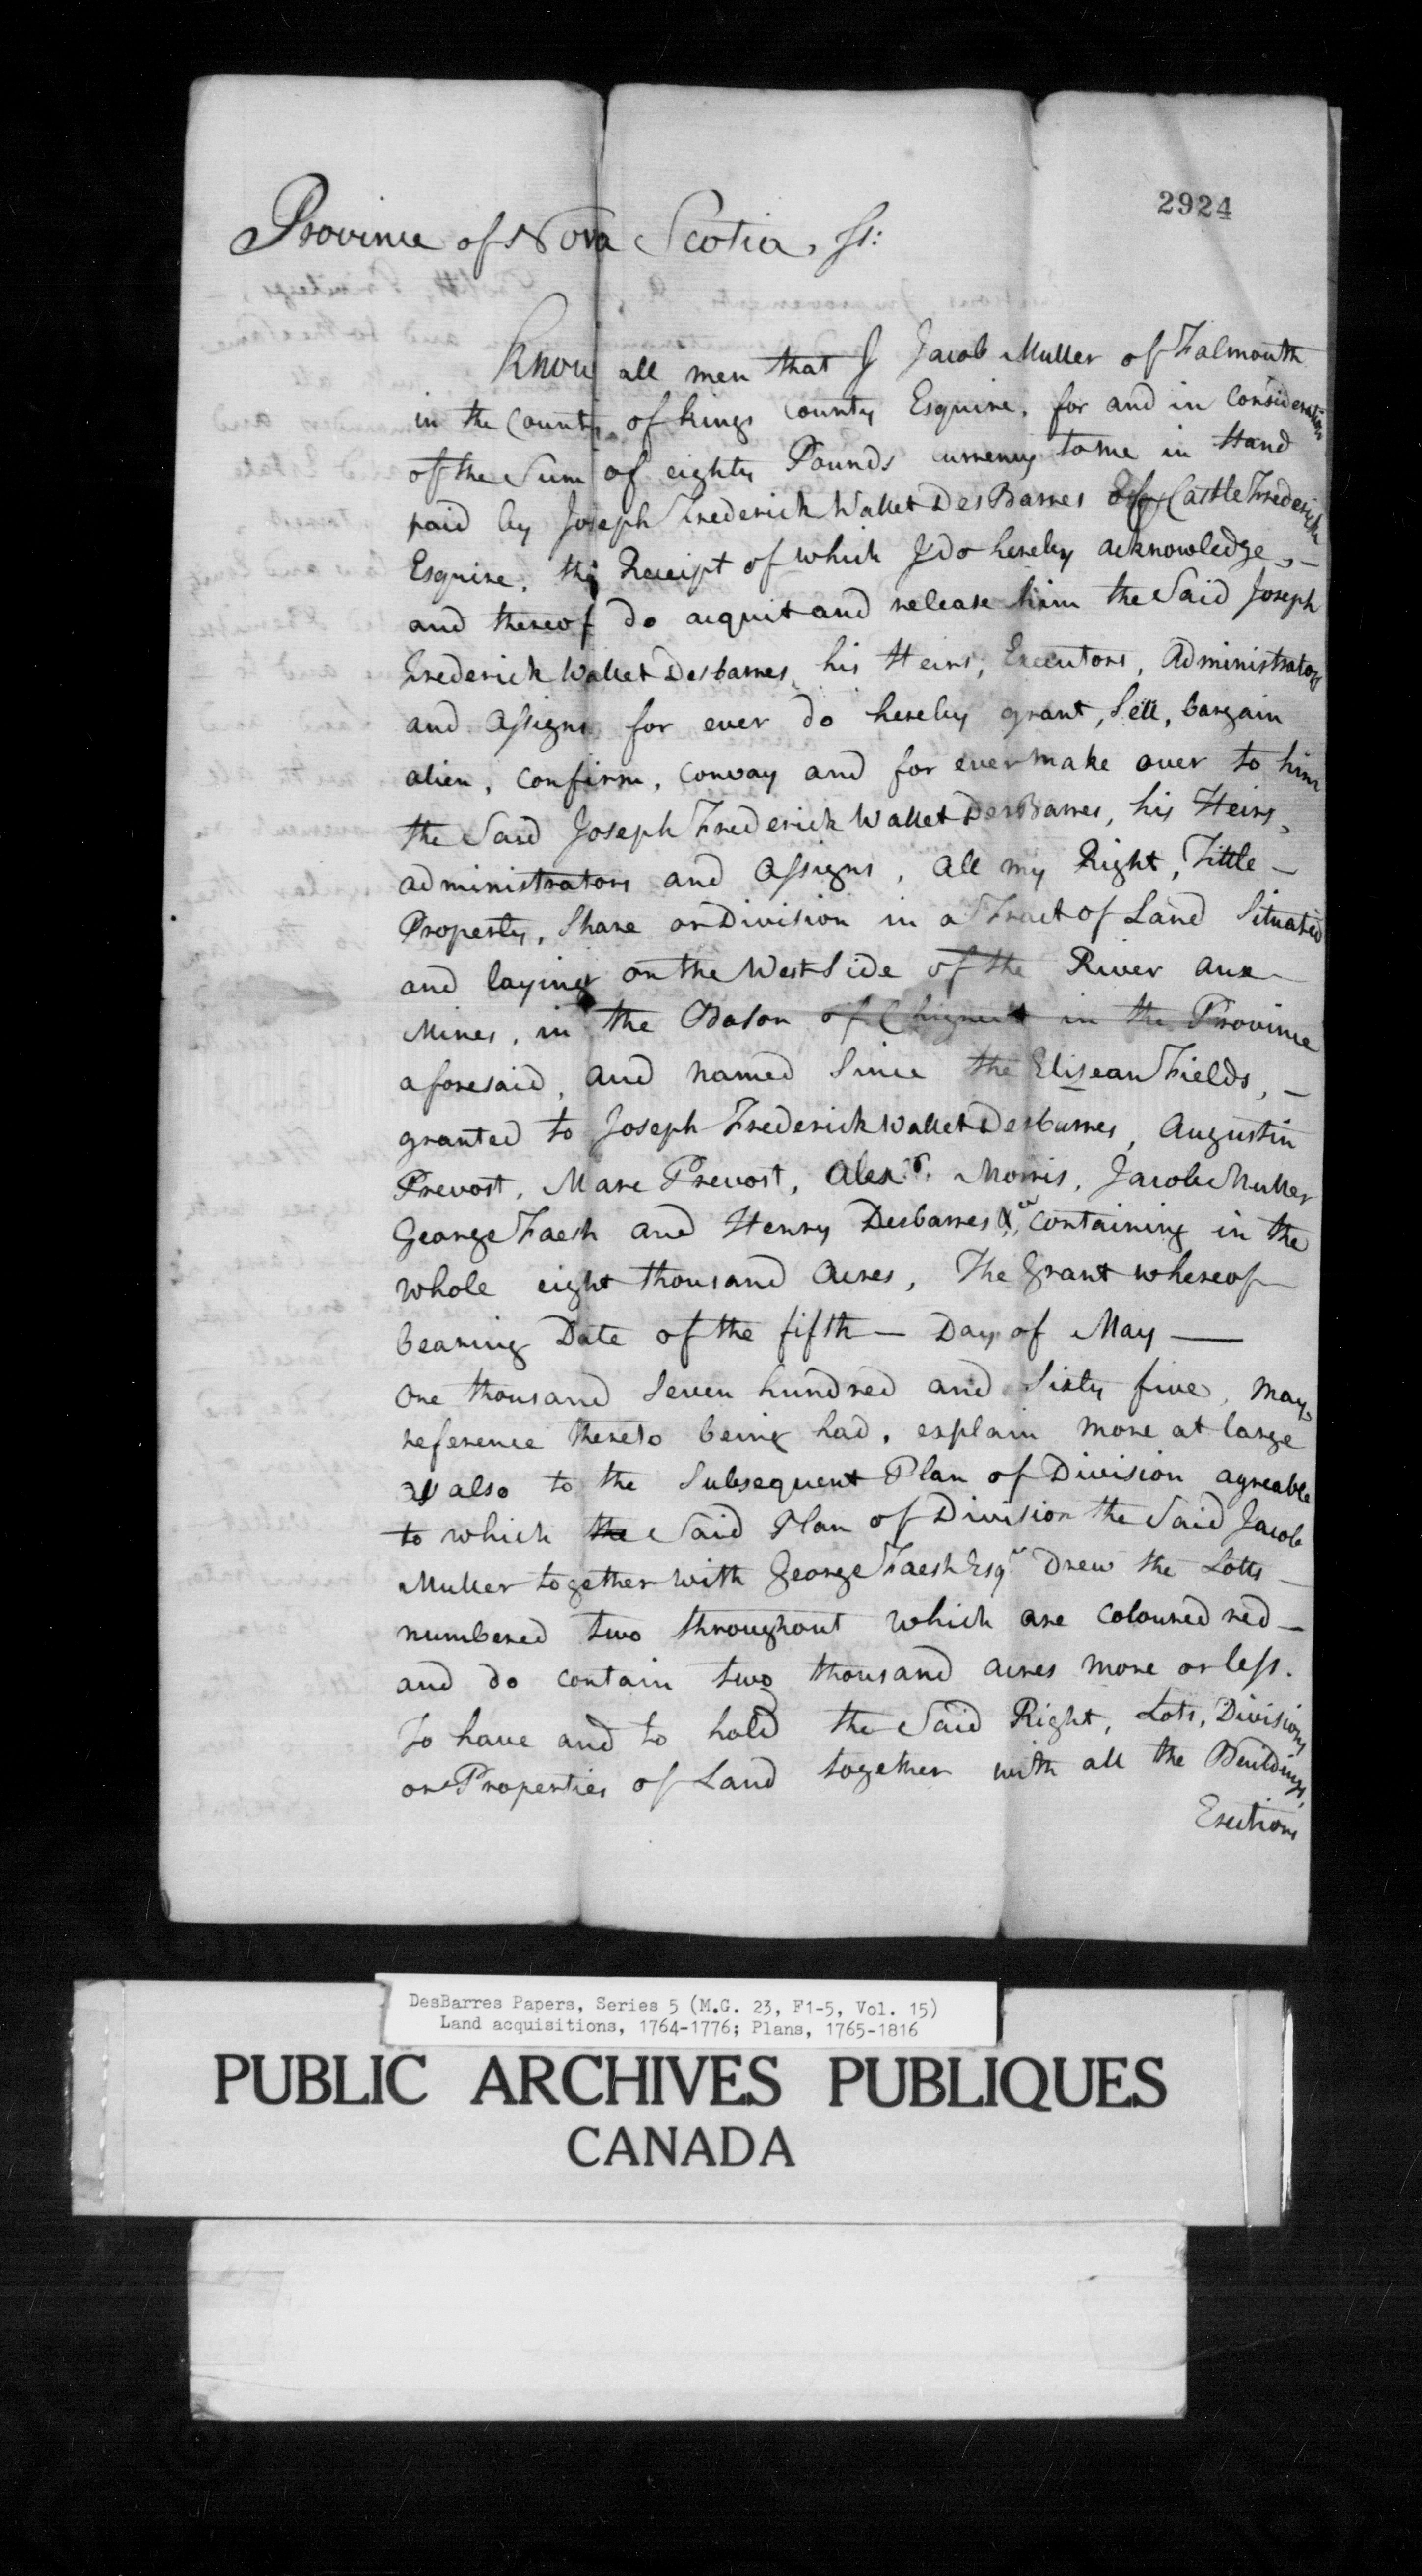 2924
Province of Nova Scotia, ss:
Know all men that I Jacob Muller of Falmouth
in the County of kings county Esquire, for and in Consideration
of the Sum of eighty Pounds currency to me in Hand
paid by Joseph Frederick Wallet DesBarres of Castle Frederick
Esquire, the Receipt of which I do hereby acknowledge, —
and thereof do acquit and release him the Said Joseph
Frederick Wallet Desbarres, his Heirs, Executors, Administrators
and Assigns for ever do hereby grant, Sell, bargain
alien, confirm, convay and for ever make over to him
the Said Joseph Frederick Wallet DesBarres, his Heirs,
administrators and Assigns, all my Right, Tittle —
Property, Share or Division in a Tract of Land Situated
and laying on the West Side of the River aux
Mines, in the Bason of in the Province
aforesaid, and named Since the Elizean Fields, —
granted to Joseph Frederick Wallet Desbarres, Augustin
Prevost, Marc Prevost, Alexr. Morris, Jacob Muller
George Faesh and Henry Desbarres &ca containing in the
whole eight thousand Acres, The Grant whereof
bearing Date of the fifth — Day of May —
One thousand Seven hundred and Sixty five, may,
reference thereto being had, explain more at large
as also to the Subsequent Plan of Division agreable
to which the Said Plan of Division the Said Jacob
Muller together with George Faesh Esqr Drew the Lotts —
numbered two throughout which are coloured red —
and do contain two thousand acres more or less.
To have and to hold the Said Right, Lots, Divisions
or Properties of Land together with all the Buildings,
Erections
DesBarres Papers, Series 5 (M.G. 23, F1-5, Vol. 15)
Land acquisitions, 1764-1776; Plans, 1765-1816
PUBLIC ARCHIVES PUBLIQUES
CANADA